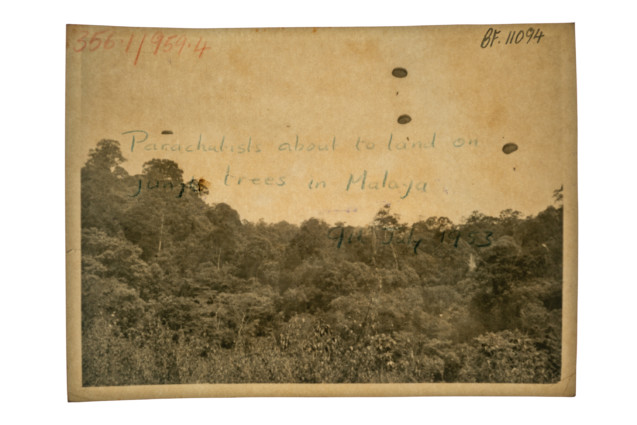 356·1/959·4
BF. 11094
Parachutists about to land on
jungle trees in Malaya
July 1953